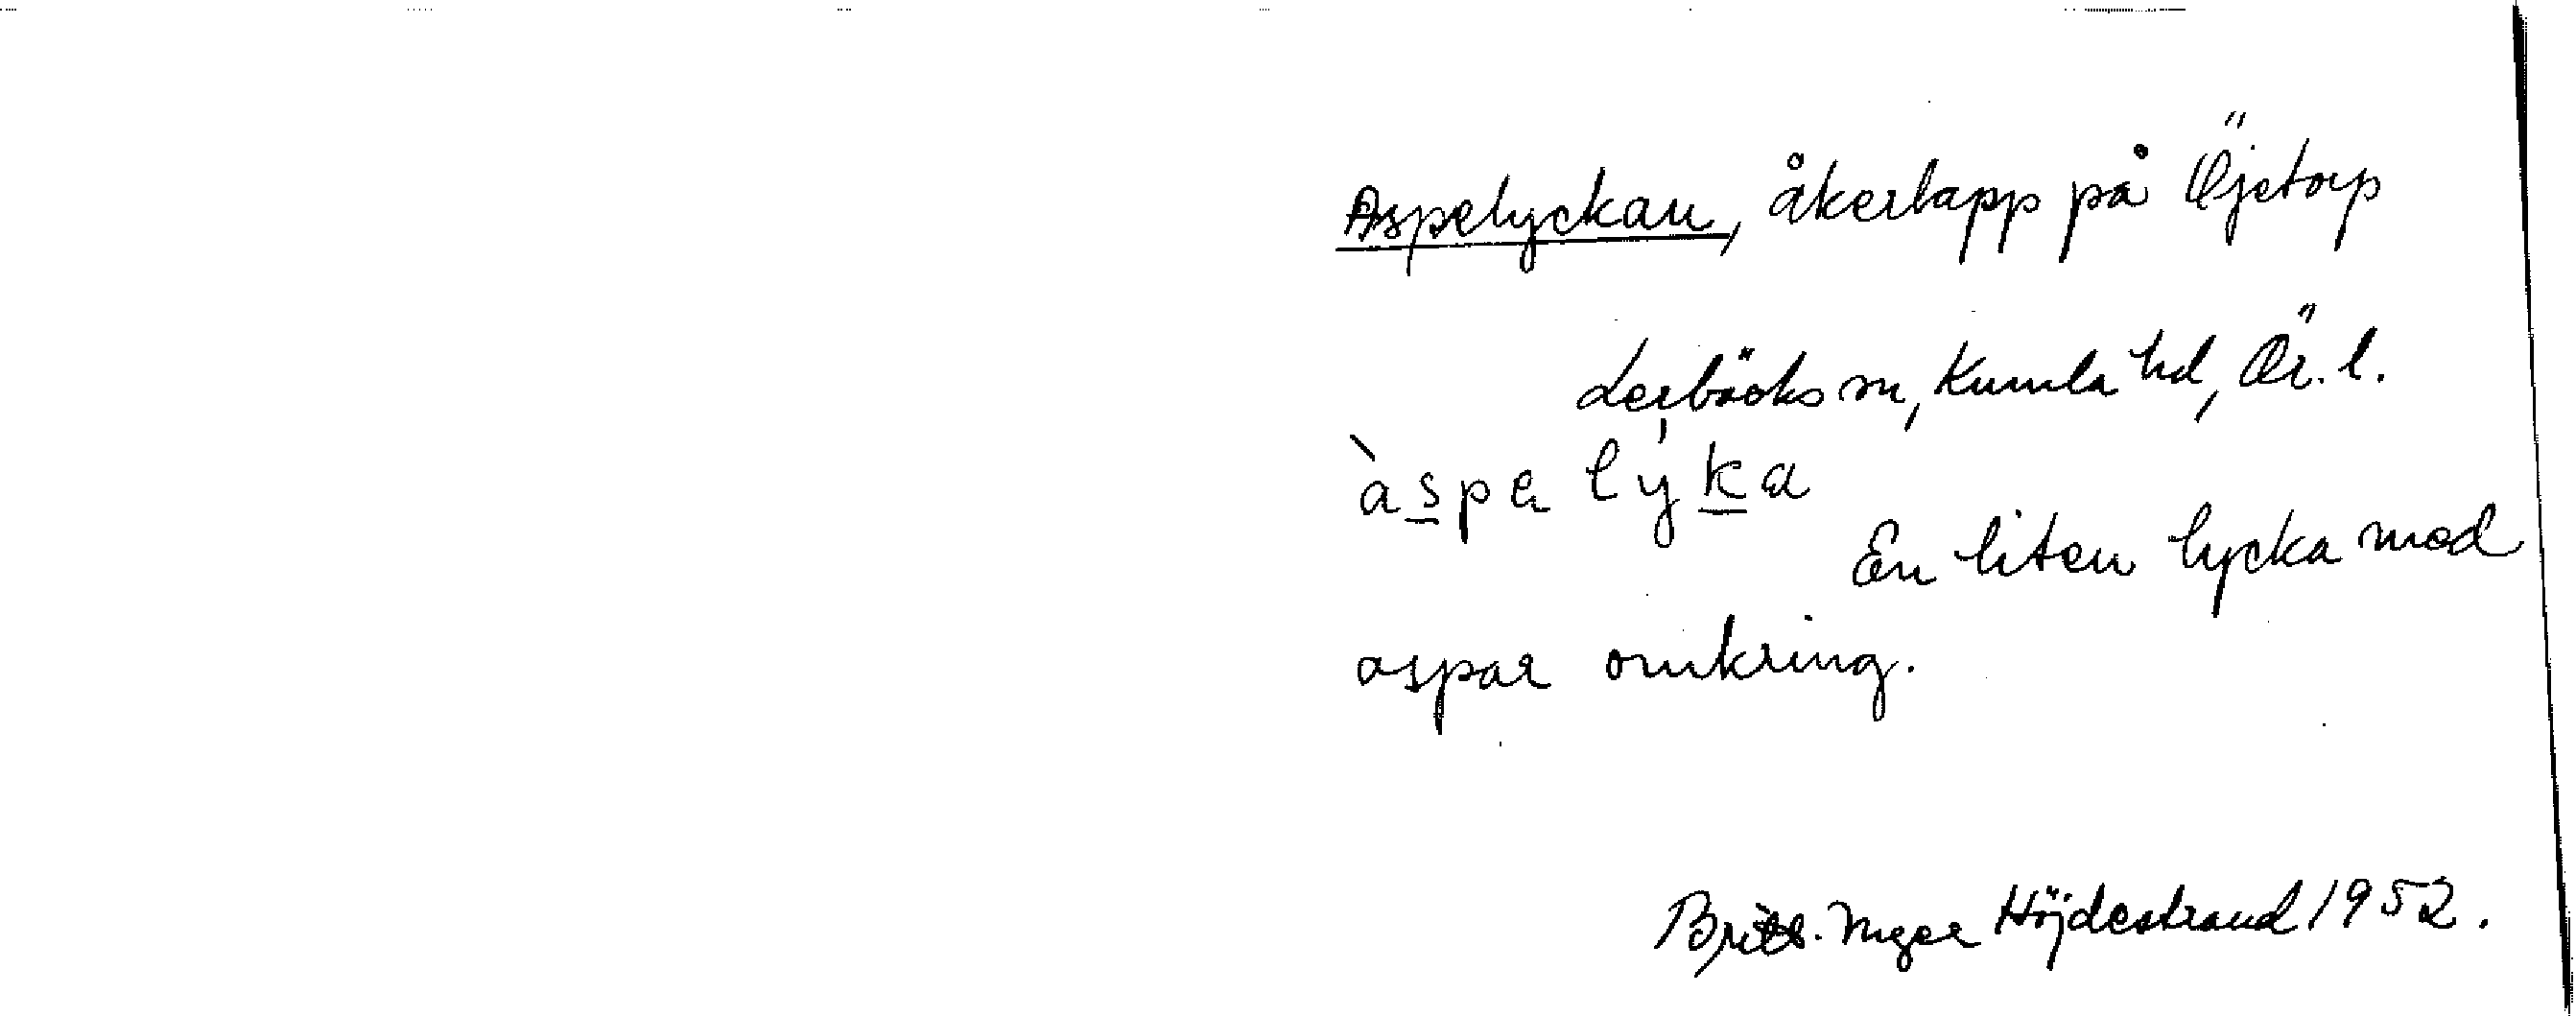 Aspelyckan, åkerlapp på Öjetorp
Lerbäcks sn, Kumla hd, Ör. l.
àspa lyka
En liten lycka med
aspar omkring.
Britt-Inger Höjdestrand 1952.